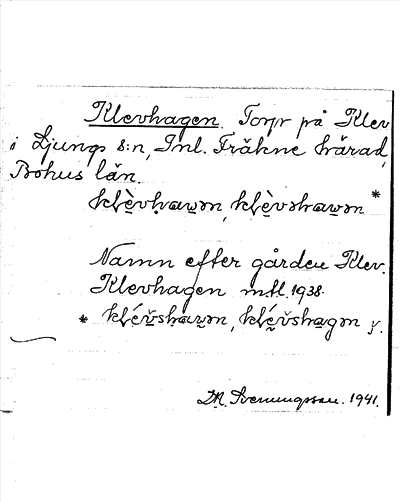 Klevhagen. Torp på Klev
i Ljungs s:n, Inl. Fräkne härad,
Bohus län.
klèvhawən, klèvshawən *
Namn efter gården Klev.
Klevhagen m.fl. 1938.
* klévshawən, klévshagən y.
Sveningsson. 1941.